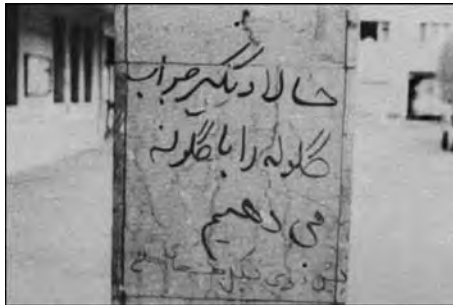 حالا دیگر جواب
گلوله را با گلوله
می دهیم